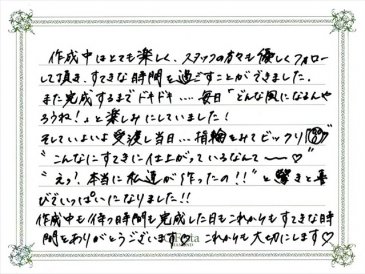 作成中はとても楽しく、スタッフの方々も優しくフォロー
して頂き、すてきな時間を過ごすことができました。
また完成するまでドキドキ…毎日「どんな風になるんや
ろうね！」と楽しみにしていました！
そしていよいよ受渡し当日…指輪をみてビックリ♡
"こんなにすてきに仕上がっているなんて〜♡"
"えっ！本当に私達が作ったの！！"と驚きと喜
びでいっぱいになりました！！
作成中も待つ時間も完成した日もこれからもすてきな時
間をありがとうございます♡ これからも大切にします♡